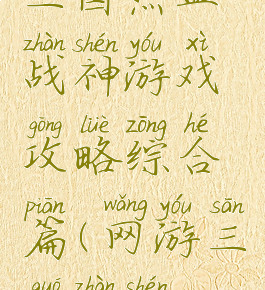 zhàn shén yóu xì
战神游戏
gōng lüè zōng hé
攻略综合
piān wǎng yóu sān
篇(网游三
guó zhàn shén